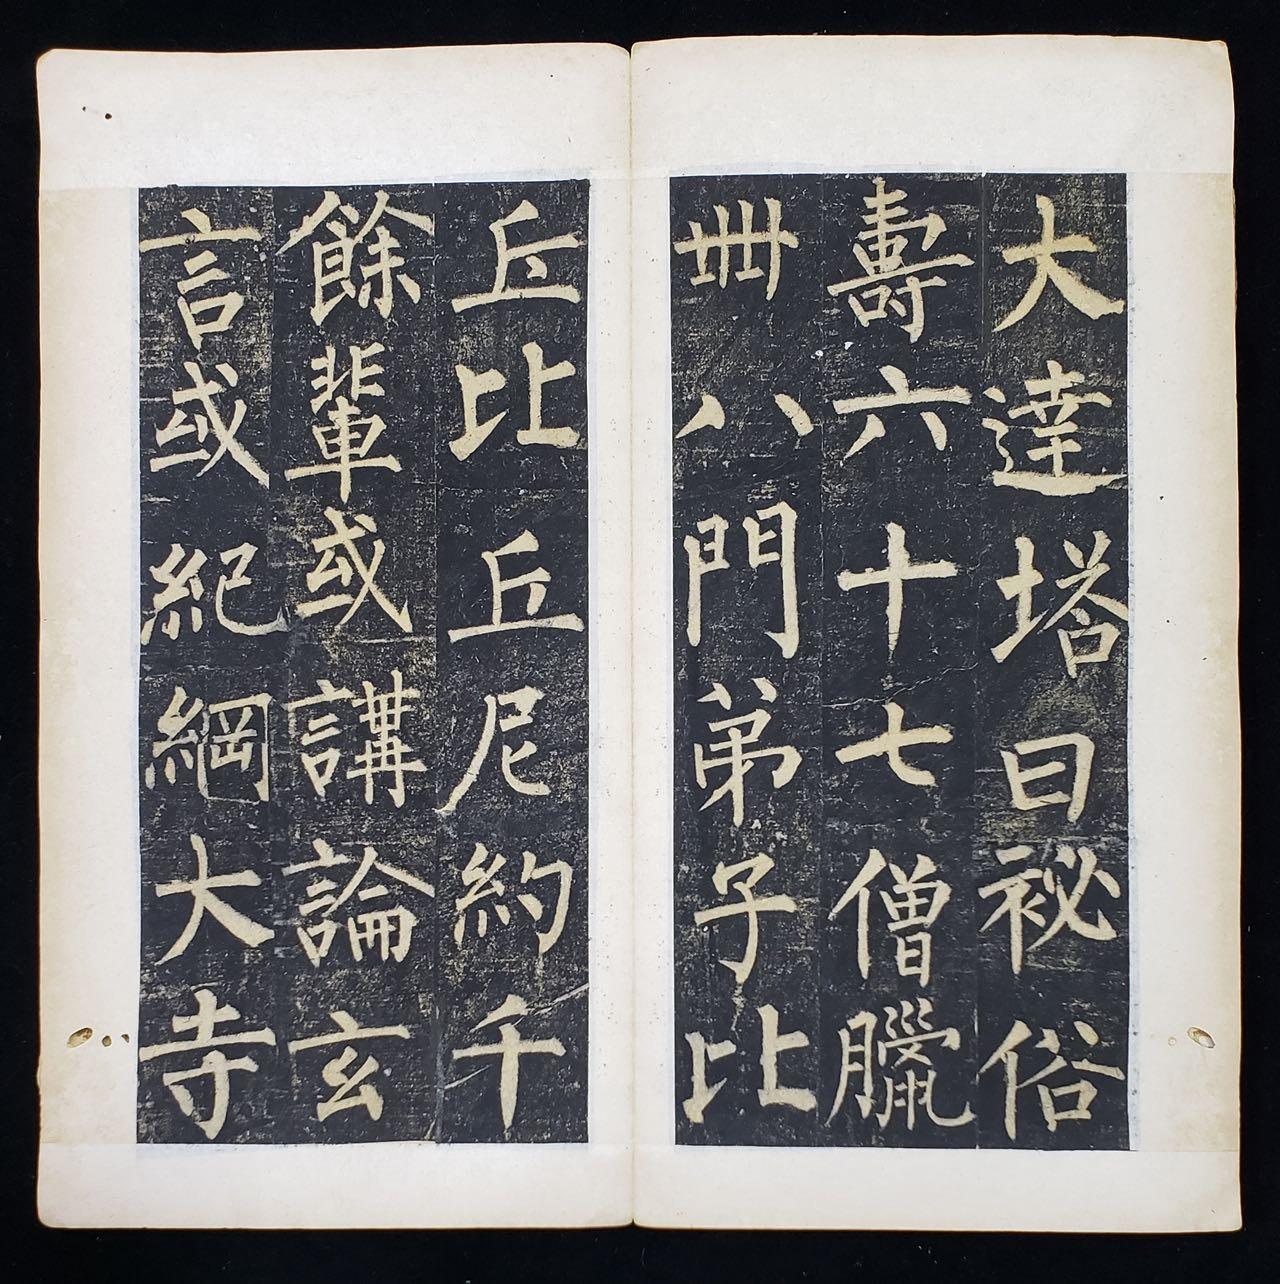 大達塔曰祕俗
壽六十七僧臘
卌八門弟子比
丘比丘尼約千
餘輩或講論玄
言或紀綱大寺